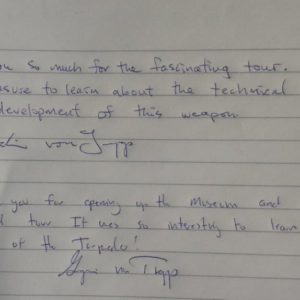 ou so much for the fascinating tour.
asure to learn about the technical
development of this weapon
von Trapp
you for opening up the Museum and
d tour It was so interesting to learn
of the Torpedo!
von Trapp